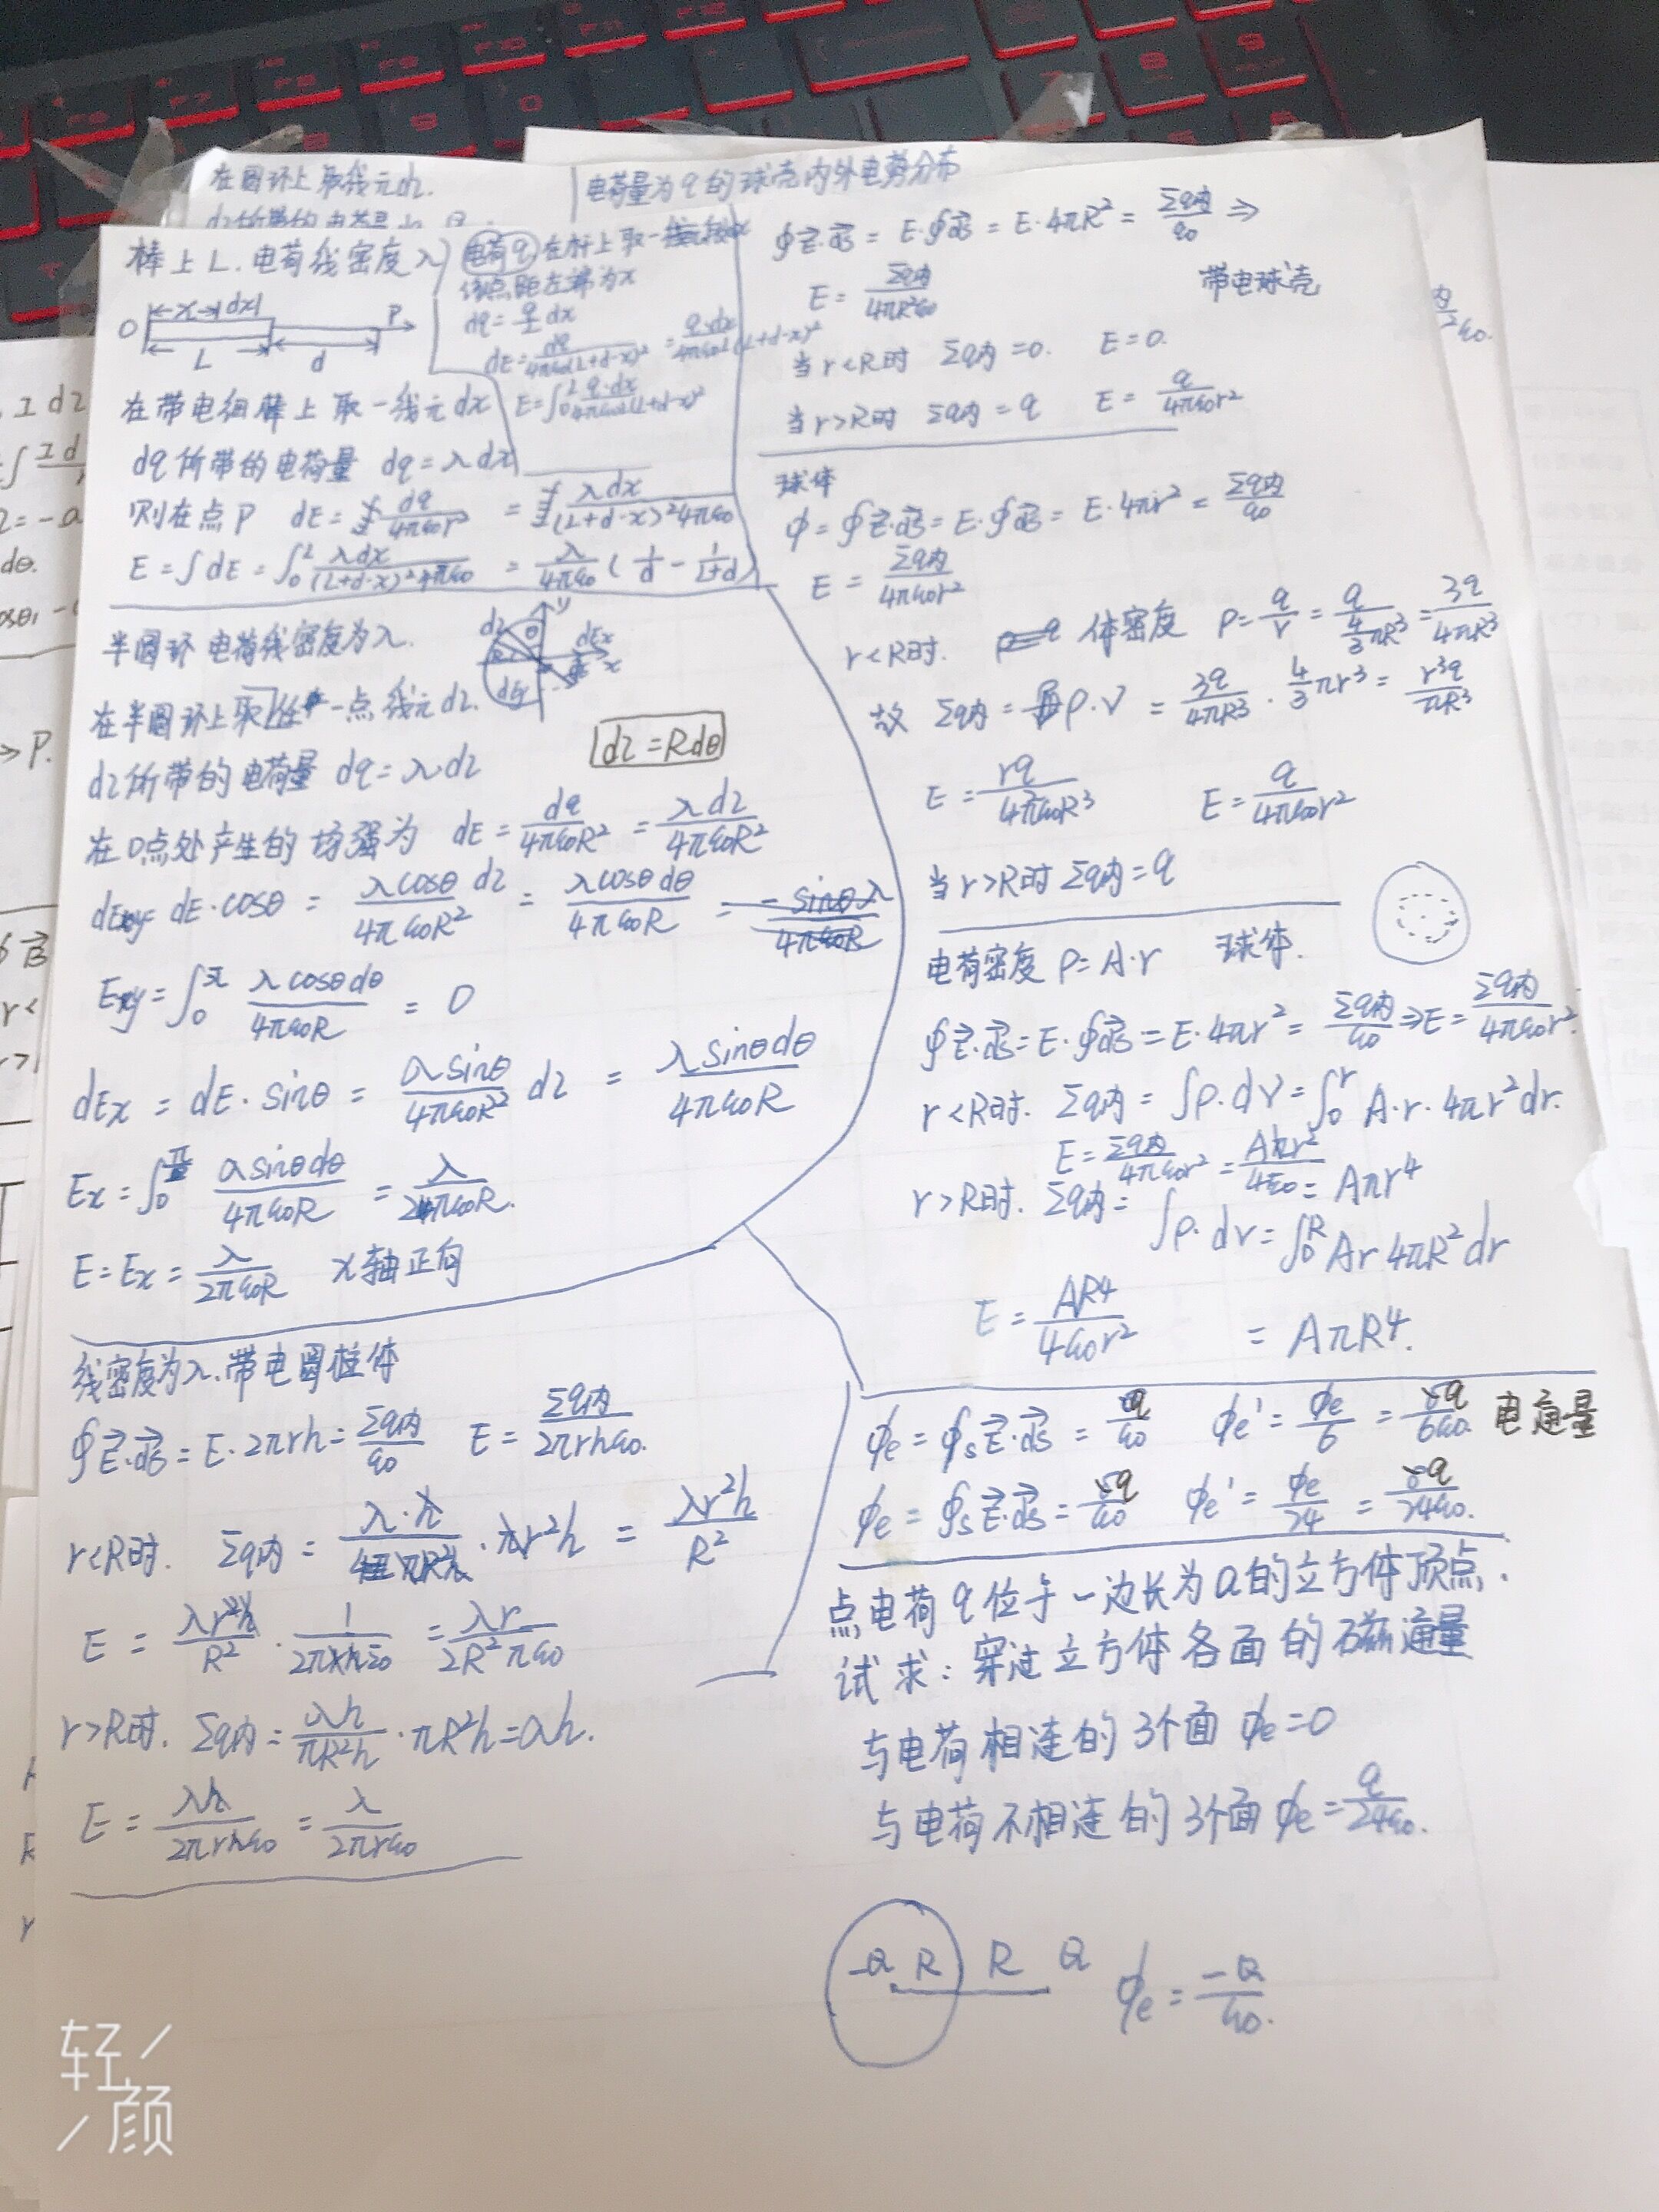 在圆环上取线元dl.
电荷量为q的球壳内外电势分布
棒上L.电荷线密度λ
O x dx P
L d
在带电细棒上取一线元dx
dq所带的电荷量 dq=λdx
则在点P dE=dq/4πε0r² = λdx/(L+d-x)²4πε0
E=∫dE=∫₀ᴸ λdx/(L+d-x)²4πε0 = λ/4πε0 (1/d - 1/L+d)
电荷q 在杆上取一线段dx
该点距左端为x
dq=q/L dx
dE=dq/4πε0(L+d-x)² = q·dx/4πε0L(L+d-x)²
E=∫₀ᴸ q·dx/4πε0L(L+d-x)²
半圆环 电荷线密度为λ.
在半圆环上取任一点线元dl.
dl=Rdθ
dl所带的电荷量 dq=λdl
在O点处产生的场强为 dE=dq/4πε0R² = λdl/4πε0R²
dEy=dE·cosθ = λcosθ dl/4πε0R² = λcosθdθ/4πε0R
Ey=∫₀^π λcosθdθ/4πε0R = 0
dEx = dE·sinθ = λsinθ/4πε0R² dl = λsinθdθ/4πε0R
Ex=∫₀^π λsinθdθ/4πε0R = λ/2πε0R.
E=Ex=λ/2πε0R x轴正向
线密度为λ.带电圆柱体
∮E·ds=E·2πrh=Σq内/ε0 E=Σq内/2πrhε0.
r<R时. Σq内 = λ·h/πR²h ·πr²h = λr²h/R²
E = λr²h/R² · 1/2πrhε0 = λr/2R²πε0
r>R时. Σq内=λh/πR²h ·πR²h=λh.
E = λh/2πrhε0 = λ/2πrε0
∮E·ds = E·∮ds = E·4πR² = Σq内/ε0 ⇒
E = Σq内/4πR²ε0
带电球壳
当r<R时 Σq内=0. E=0.
当r>R时 Σq内=q E=q/4πε0r²
球体
φ=∮E·ds=E·∮ds=E·4πr²=Σq内/ε0
E = Σq内/4πε0r²
r<R时. 体密度 ρ=q/V=q/(4/3)πR³=3q/4πR³
故 Σq内=ρ·V = 3q/4πR³ · 4/3πr³ = r³q/πR³
E=rq/4πε0R³ E=q/4πε0r²
当r>R时 Σq内=q
电荷密度ρ=A·r 球体.
∮E·ds=E·∮ds=E·4πr²=Σq内/ε0⇒E=Σq内/4πε0r²
r<R时. Σq内=∫ρ·dV=∫₀ʳ A·r·4πr²dr.
E=Σq内/4πε0r²=Ar²/4ε0 = Aπr⁴
r>R时. Σq内=∫ρ·dv=∫₀ᴿ Ar4πR²dr
E=AR⁴/4ε0r² = AπR⁴.
φe=∮s E·ds=q/ε0 φe'=φe/6=q/6ε0. 电通量
φe=∮s E·ds=q/ε0 φe'=φe/24=q/24ε0.
点电荷q位于一边长为a的立方体顶点.
试求:穿过立方体各面的磁通量
与电荷相连的3个面 φe=0
与电荷不相连的3个面 φe=q/24ε0.
-Q R R Q φe=-Q/ε0.
轻颜